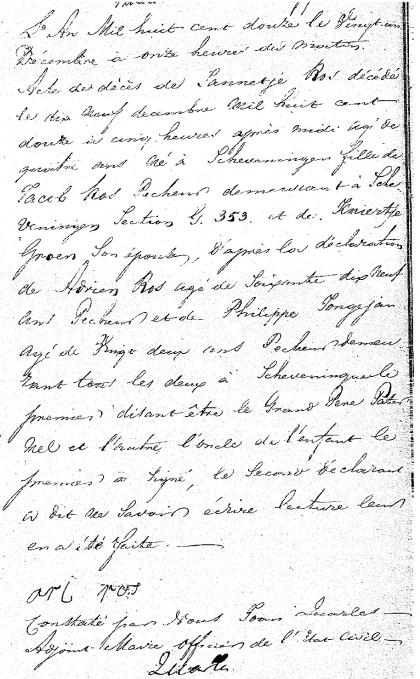 L'An Mil huit cent douze le Vingt un
Décembre a onze heure du matin
Acte de décès de Jannetje Ros décédé
le dix Neuf decembre Mil huit cent
douze à cinq heures après midi agé de
quatre ans Né à Scheveningen fille de
Jacob Ros Pecheur demeurant à Sche
veningen Section G. 353. et de Kniertje
Groen, Son épouse, D'après la déclaration
de Adrien Ros agé de Soixante dix Neuf
ans Pecheur et de Philippe Jongejan
agé de Vingt deux ans Pecheur demeu
rant tous les deux à Scheveningue le
premier disant être le Grand Père Pater
Nel et l'autre l'oncle de l'enfant le
premier a Signé, le Second Déclarant
a dit ne Savoir écrire lecture leur
en a été faite. —
Ros
Constaté par Nous Quarles —
Adjoint Maire officier de l'Etat Civil —
Quarles